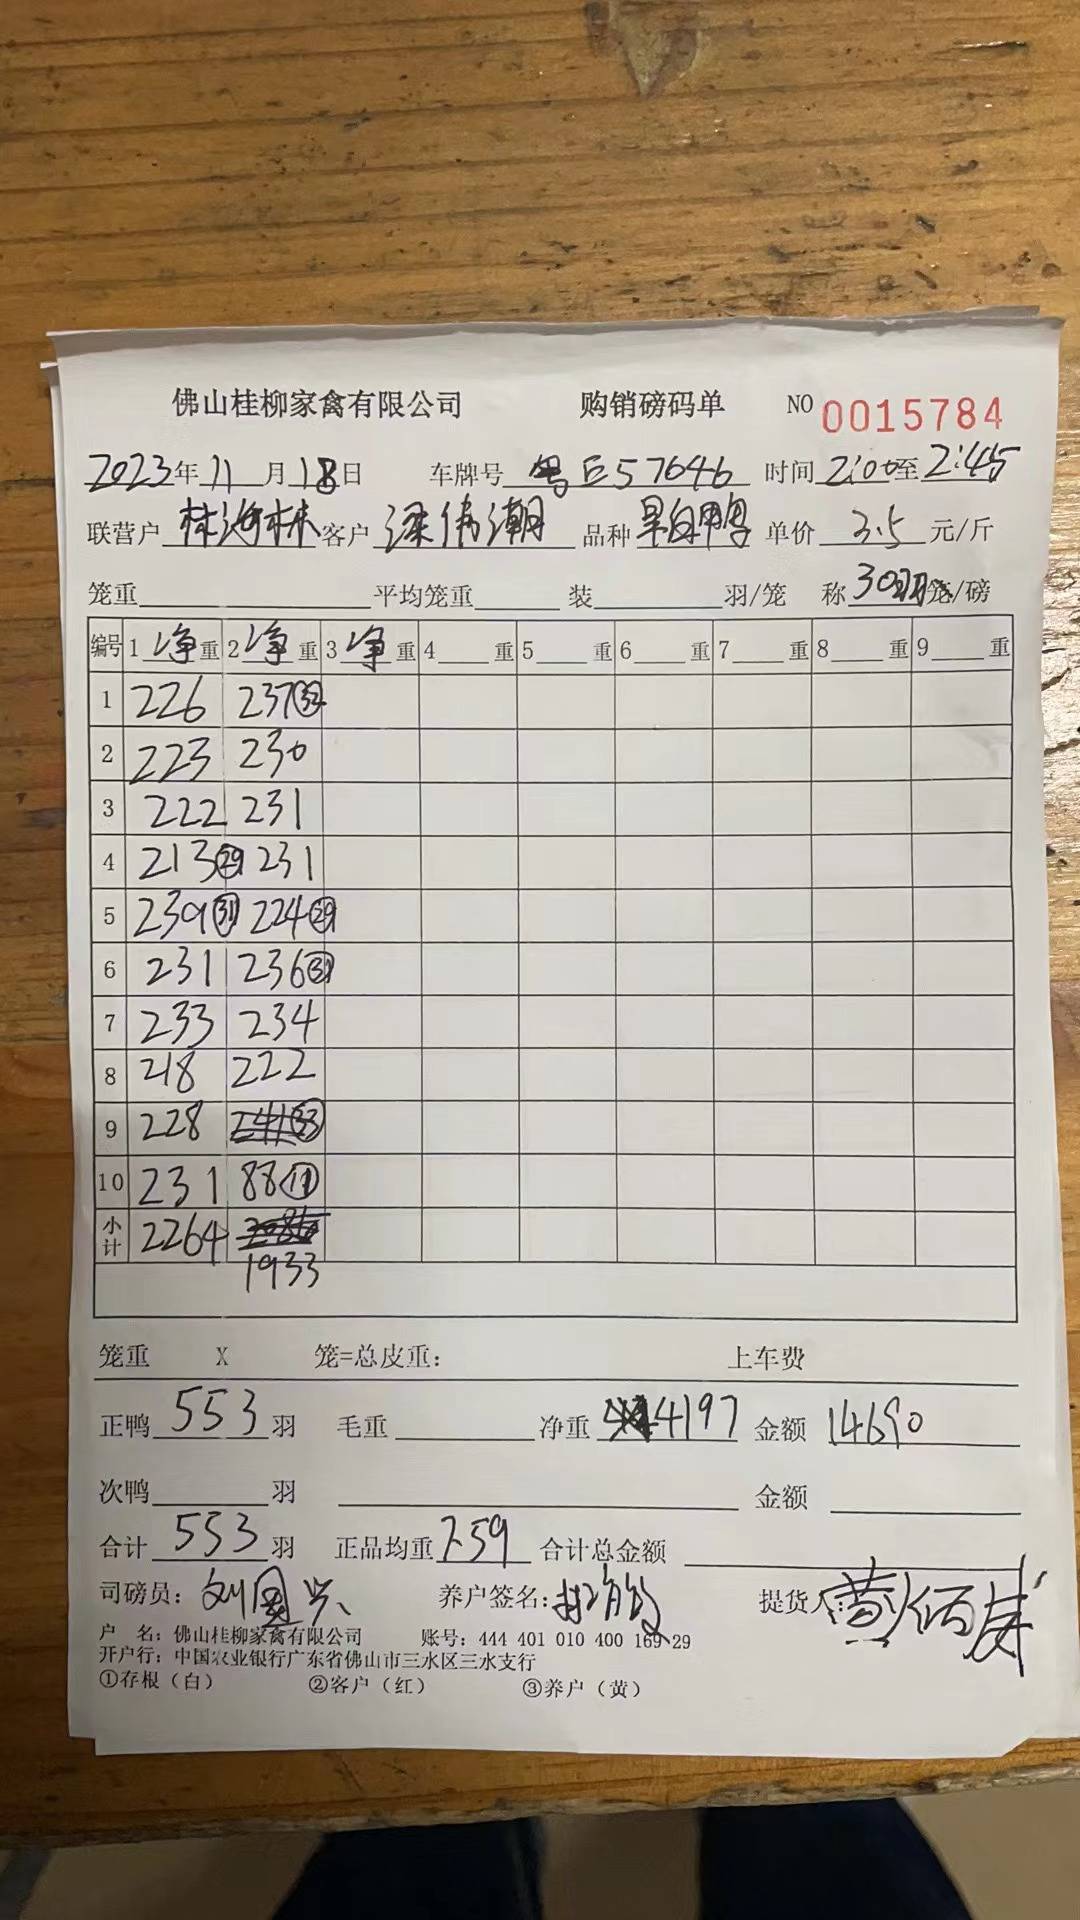 佛山桂柳家禽有限公司 购销磅码单 NO 0015784
2023年11月18日 车牌号 57646 时间2:00至2:45
联营户 林海林 客户 梁伟潮 品种 单价 3.5 元/斤
笼重 平均笼重 装 羽/笼 称 30羽笼/磅
编号 1 净 重 2 净 重 3 净 重 4 重 5 重 6 重 7 重 8 重 9 重
1 226 237㉜
2 223 230
3 222 231
4 213㉙ 231
5 239㉛ 224㉙
6 231 236㉛
7 233 234
8 218 222
9 228 241㉝
10 231 88⑪
小计 2264 2086
1933
笼重 X 笼=总皮重： 上车费
正鸭 553 羽 毛重 净重 4197 金额 14690
次鸭 羽 金额
合计 553 羽 正品均重 7.59 合计总金额
司磅员：刘国兴 养户签名： 提货人：黄
户 名：佛山桂柳家禽有限公司 账号：444 401 010 400 169 29
开户行：中国农业银行广东省佛山市三水区三水支行
①存根（白） ②客户（红） ③养户（黄）